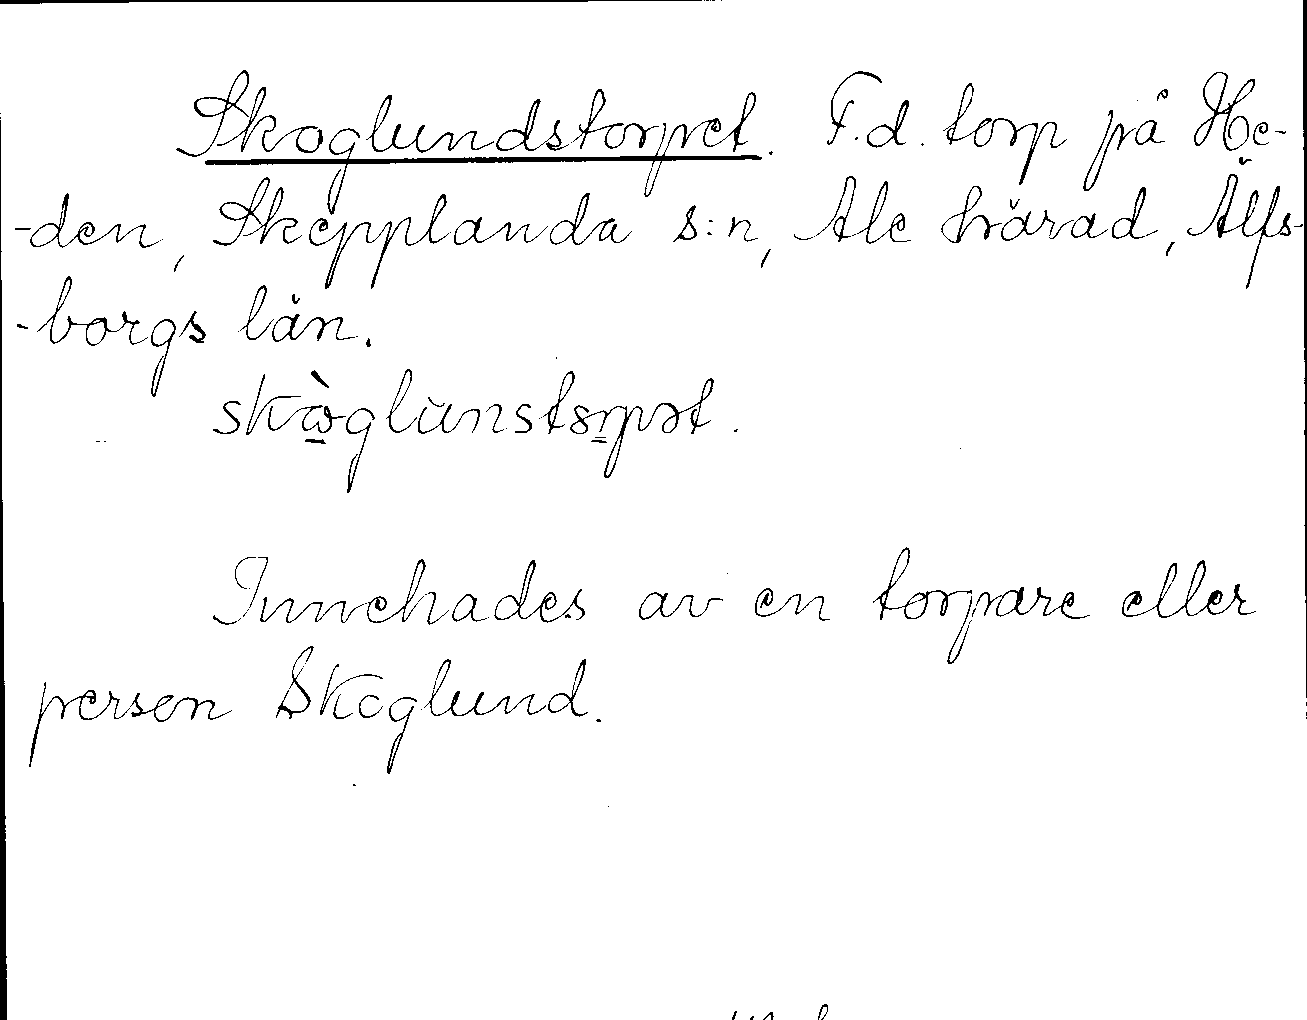 Skoglundstorpet. F.d. torp på He-
-den, Skepplanda s:n, Ale härad, Älfs-
-borgs län.
skògluns­torpət.
Innehades av en torpare eller
person Skoglund.